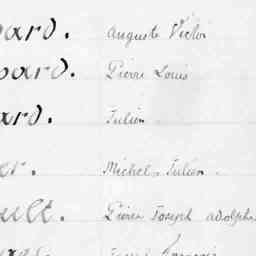 ard. Auguste Victor
bard. Pierre Louis
ard. Julien
er. Michel, Julien
ult. Pierre Joseph adolphe